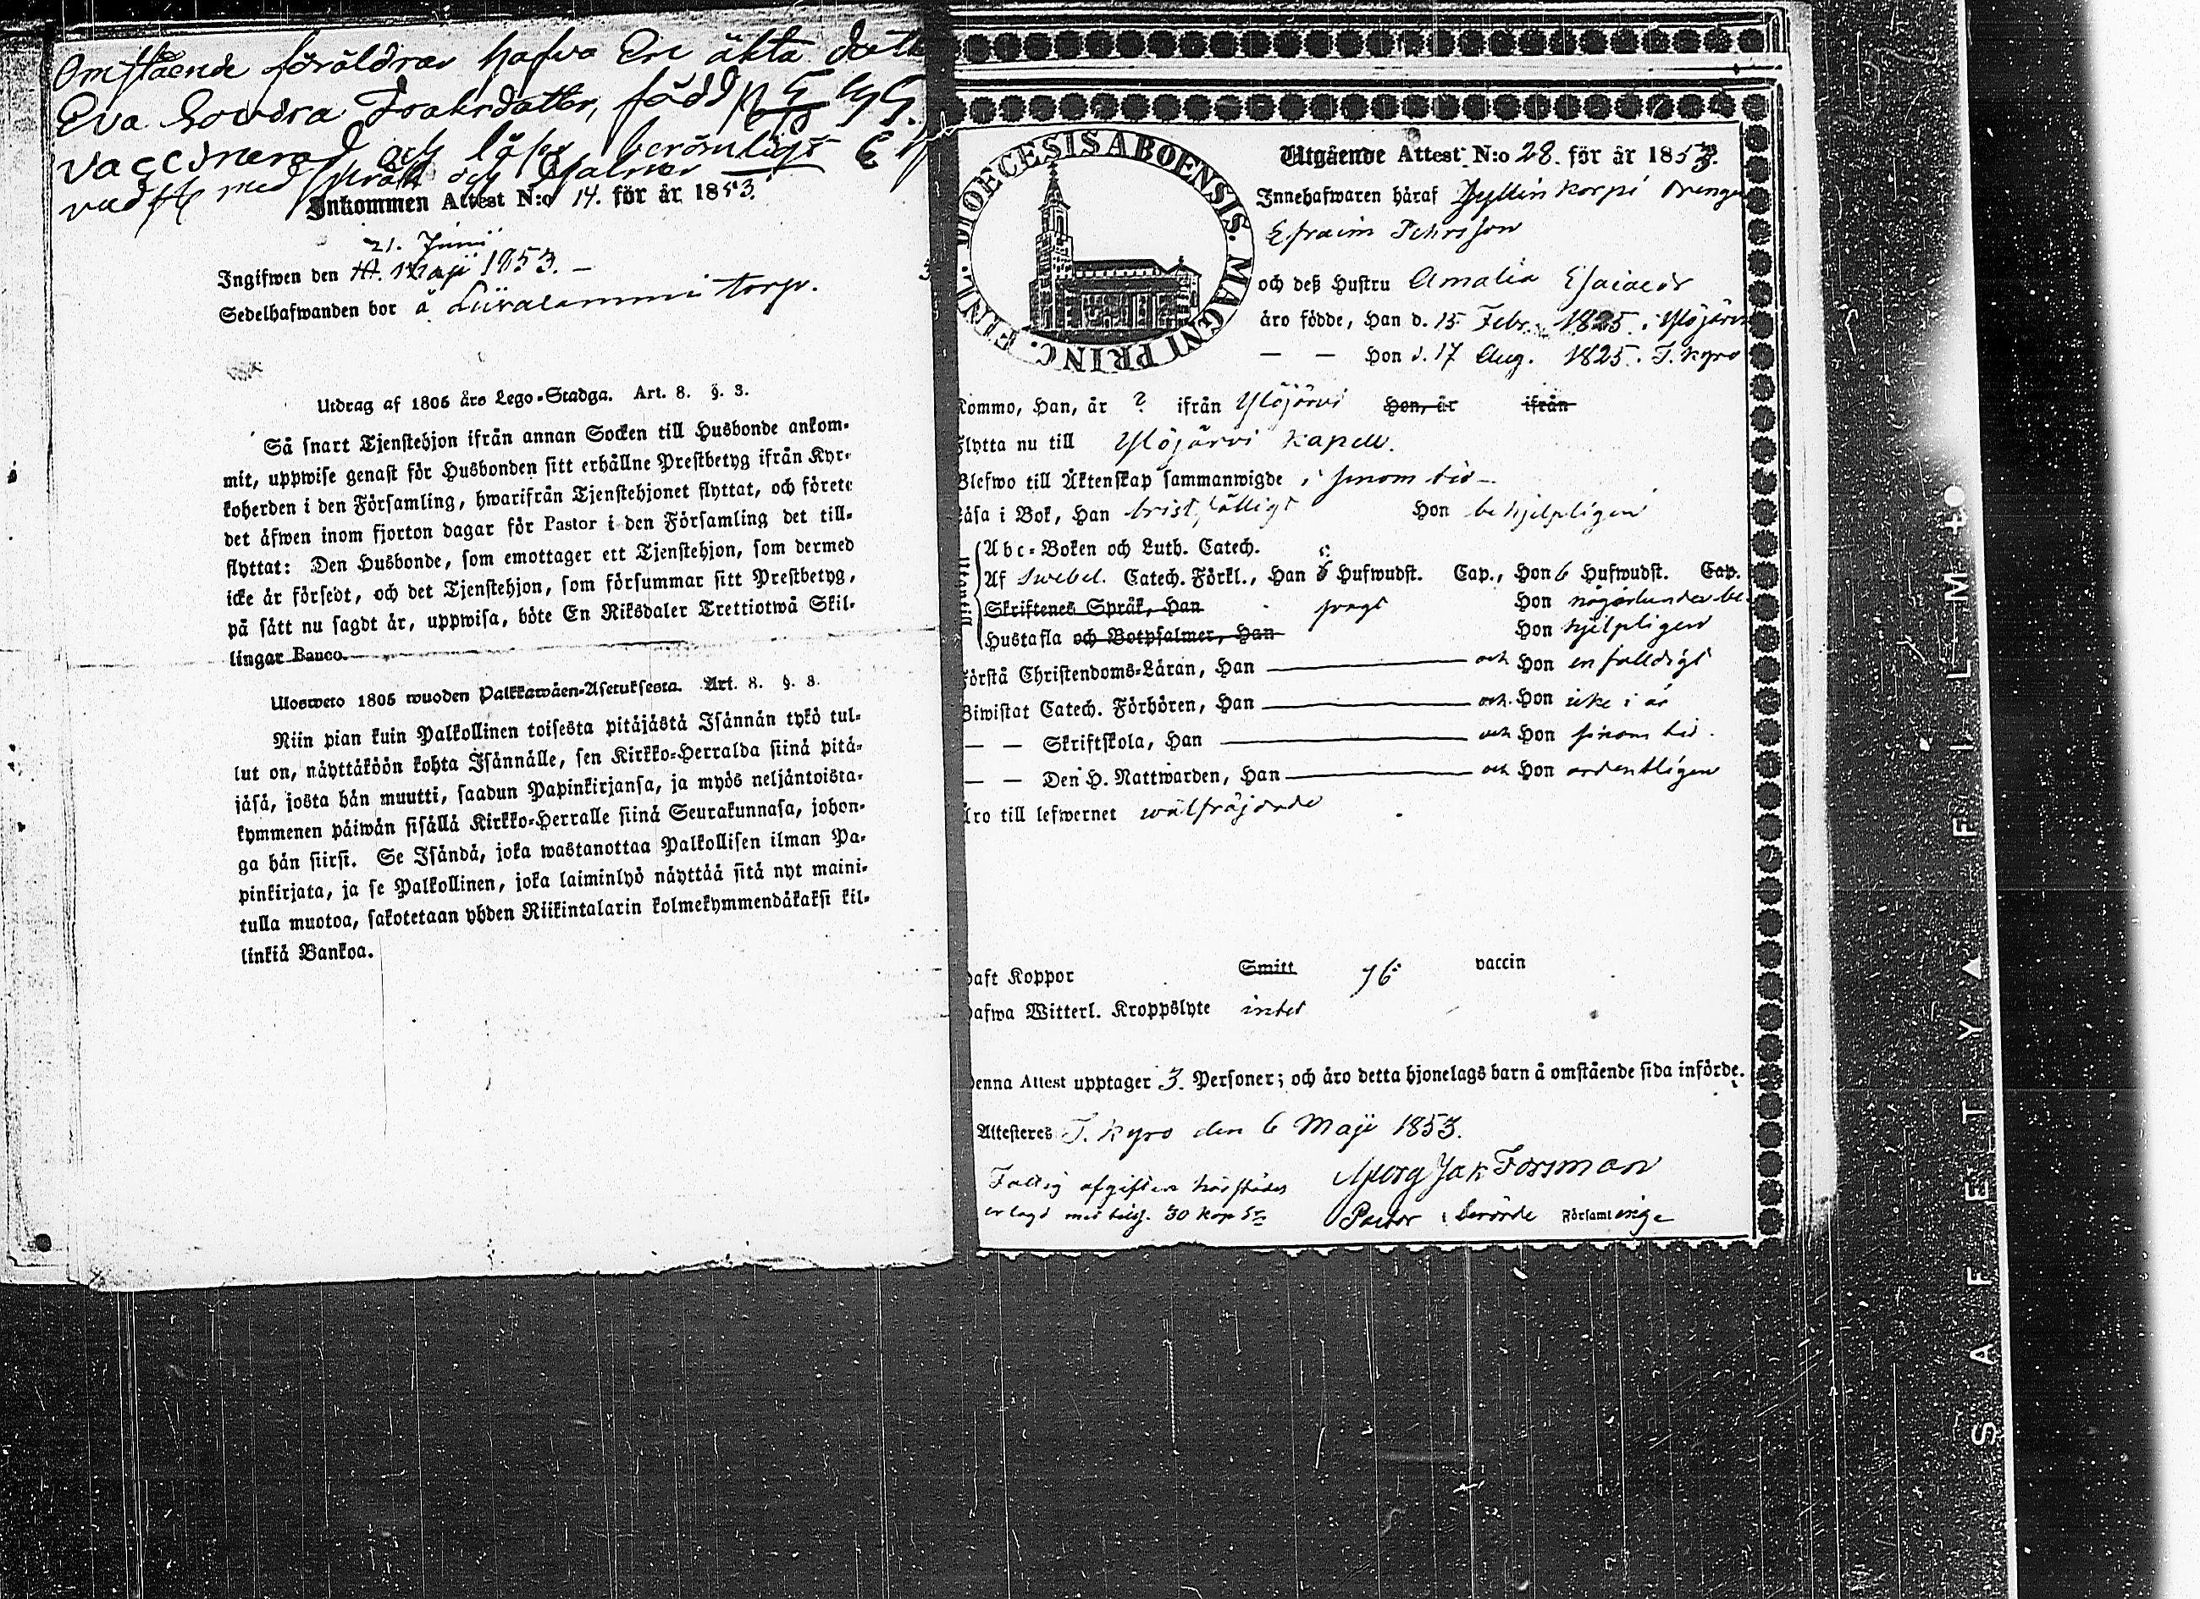 Omstående föräldrar hafva En äkta dott
Eva Lovisa Isaksdotter, född
vaccinerad och läser berömligt
med språk och Psalmer
Inkommen Attest N:o 14. för år 1853.
21. Junii
Ingifwen den Maji 1853. –
Sedelhafwanden bor å Liiralammi torp.
Utdrag af 1805 års Lego-Stadga. Art. 8. §. 3.
Så snart Tjenstehjon ifrån annan Socken till Husbonde ankom-
mit, uppwise genast för Husbonden sitt erhållne Prestbetyg ifrån Kyr-
koherden i den Församling, hwarifrån Tjenstehjonet flyttat, och förete
det äfwen inom fjorton dagar för Pastor i den Församling det till-
flyttat: Den Husbonde, som emottager ett Tjenstehjon, som dermed
icke är försedt, och det Tjenstehjon, som försummar sitt Prestbetyg,
på sätt nu sagdt är, uppwisa, böte En Riksdaler Trettiotwå Skil-
lingar Banco.
Ulosweto 1805 wuoden Palkkawäen-Asetuksesta. Art. 8. §. 3.
Niin pian kuin Palkollinen toisesta pitäjästä Isännän tykö tul-
lut on, näyttäköön kohta Isännälle, sen Kirkko-Herralda siinä pitä-
jäsä, josta hän muutti, saadun Papinkirjansa, ja myös neljäntoista-
kymmenen päiwän sisällä Kirkko-Herralle siinä Seurakunnasa, johon-
ga hän siirsi. Se Isändä, joka wastanottaa Palkollisen ilman Pa-
pinkirjata, ja se Palkollinen, joka laiminlyö näyttää sitä nyt maini-
tulla muotoa, sakotetaan yhden Riikintalarin kolmekymmendäkaksi kil-
linkiä Bankoa.
DIOECESIS ABOENSIS. MAGNI PRINC. FINL.
Utgående Attest N:o 28. för år 1853.
Innehafwaren häraf Kyllin korpi Drengen
Efraim Pehrsson
och deß Hustru Amalia Esaiaedr
äro födde, Han d. 15 Febr. 1825. i Ylöjärvi
— — Hon d. 17 Aug. 1825. T. kyro
Kommo, Han, år ? ifrån Ylöjärvi Hon, år ifrån
Flytta nu till Ylöjärvi kapell.
Blefwo till Äktenskap sammanwigde i sinom tid –
Läsa i Bok, Han bristfälligt Hon behjelpligen
Abc-Boken och Luth. Catech.
Af Swebel. Catech. Förkl., Han 5 Hufwudst. Cap., Hon 6 Hufwudst. Cap.
Skriftenes Språk, Han svagt Hon någorlunda be-
Hustafla och Botpsalmer, Han Hon hjelpligen
Förstå Christendoms-Läran, Han — och Hon enfaldigt
Biwistat Catech. Förhören, Han — och Hon icke i år
— — Skriftskola, Han — och Hon sinom tid.
— — Den H. Nattwarden, Han — och Hon ordentligen
Äro till lefwernet wälfräjdade
Haft Koppor Smitt vaccin
Hafwa Witterl. Kroppslyte intet
Denna Attest upptager 3. Personer; och äro detta hjonelags barn å omstående sida införde.
Attesteras T. kyro den 6 Maji 1853.
Fattig afgiften härstädes Georg Jak Forsman
erlagd med 30 kop Sr Pastor i berörde Församlinge
SAFETY FILM